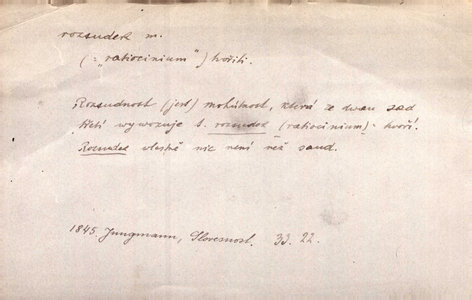 rozsudek m.
(: „ratiocinium“) tvořiti.
Rozsudnost (jest) mohútnost, která ze dwau saud
třetí wywozuje t. rozsudek (ratiocinium) tvoří.
Rozsudek vlastně nic není než saud.
1845. Jungmann, Slovesnost. 33. 22.